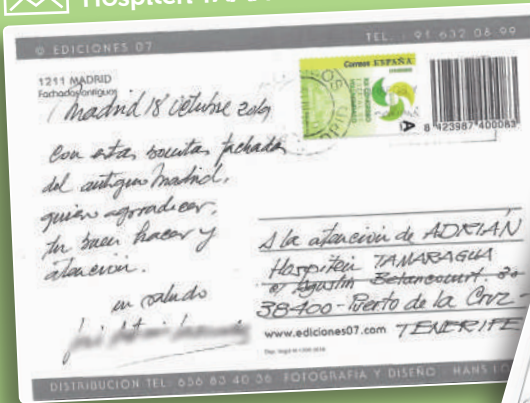 © EDICIONES 07
TEL. : 91 632 08 99
1211 MADRID
Fachadas antiguas
Correos ESPAÑA
A
8 423987 400083
Madrid 18 octubre 2019
Con estas bonitas fachadas
del antiguo Madrid,
quiero agradecer,
tu buen hacer y
atención.
un saludo
A la atención de ADRIÁN
Hospiten TAMARAGUA
c/ Agustín Betancourt. 30
38400 - Puerto de la Cruz -
TENERIFE
www.ediciones07.com
DISTRIBUCIÓN TEL. 656 83 40 36 FOTOGRAFÍA Y DISEÑO : HANS